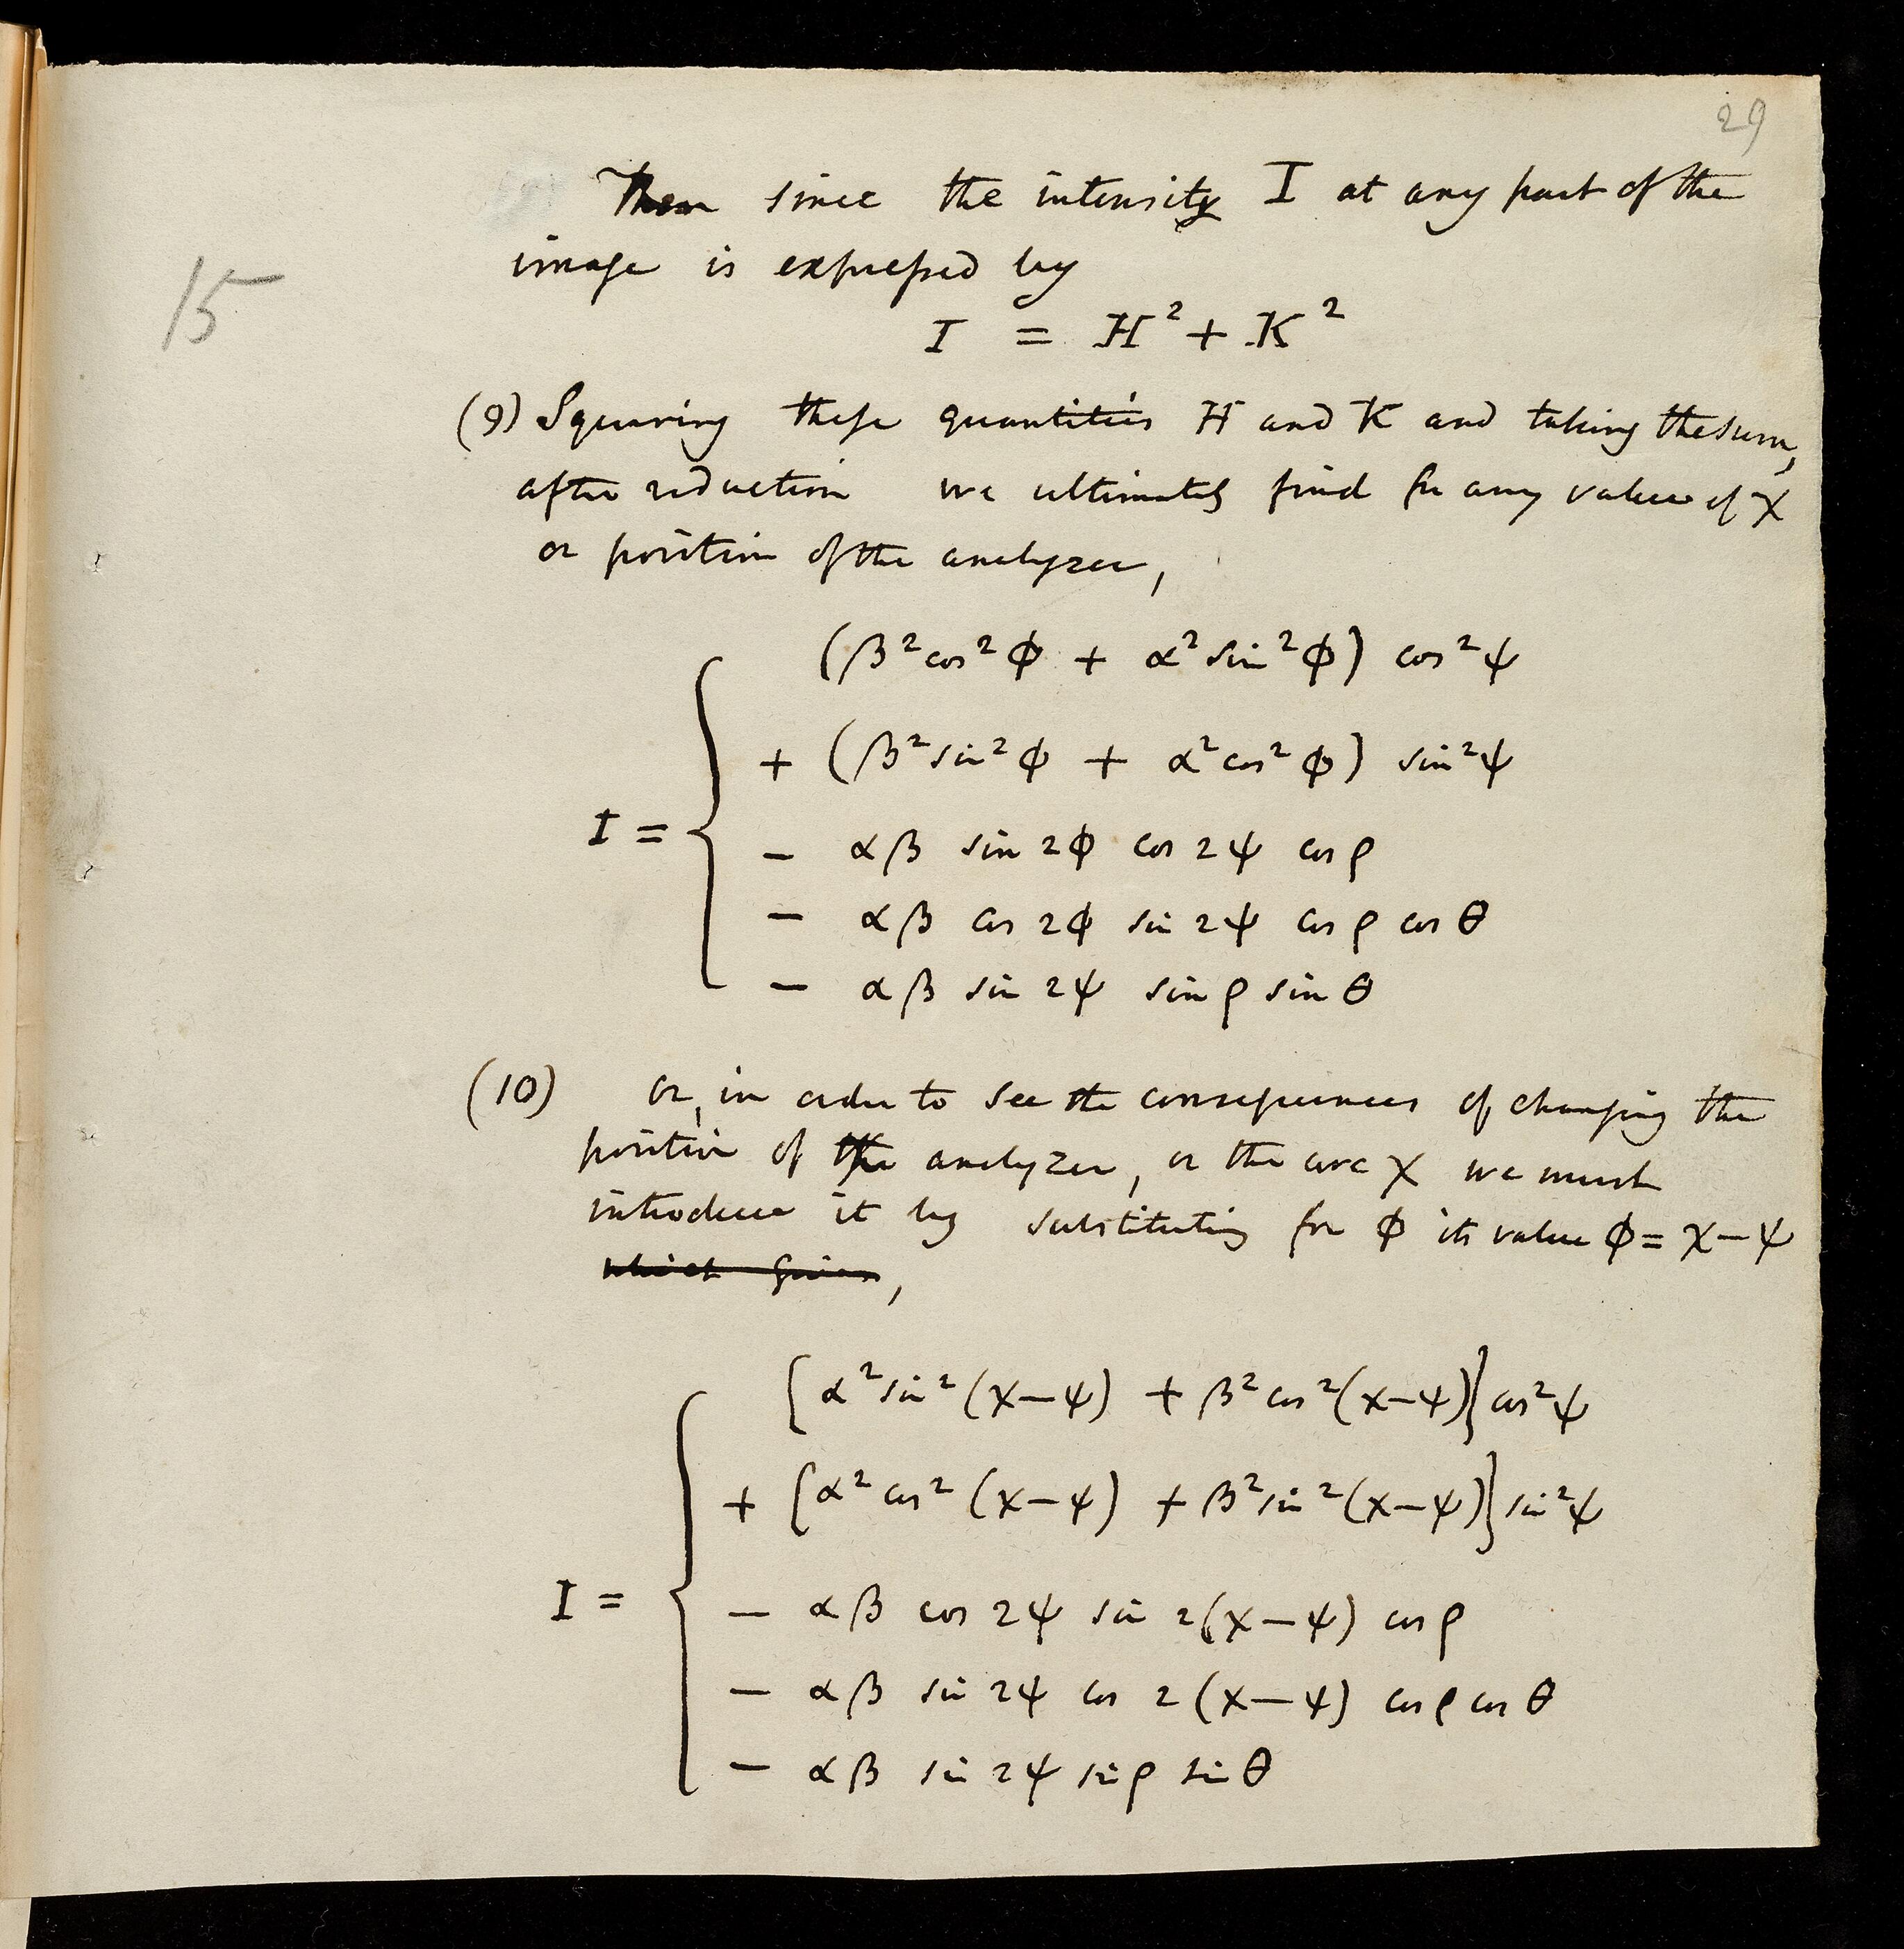 29
Then since the intensity I at any part of the
image is expreſsed by
15
I = H² + K²
(9) Squaring theſe quantities H and K and taking the sum,
after reduction we ultimately find for any value of χ
or position of the analyzer,
(β² cos² φ + α² sin² φ) cos² ψ
+ (β² sin² φ + α² cos² φ) sin² ψ
I = { − αβ sin 2φ cos 2ψ cos ρ
− αβ cos 2φ sin 2ψ cos ρ cos θ
− αβ sin 2ψ sin ρ sin θ
(10) or, in order to see the consequences of changing the
position of the analyzer, or the arc χ we must
introduce it by substituting for φ its value φ = χ − ψ
which gives,
[α² sin² (χ−ψ) + β² cos² (χ−ψ)} cos² ψ
+ [α² cos² (χ−ψ) + β² sin² (χ−ψ)} sin² ψ
I = { − αβ cos 2ψ sin 2(χ−ψ) cos ρ
− αβ sin 2ψ cos 2(χ−ψ) cos ρ cos θ
− αβ sin 2ψ sin ρ sin θ